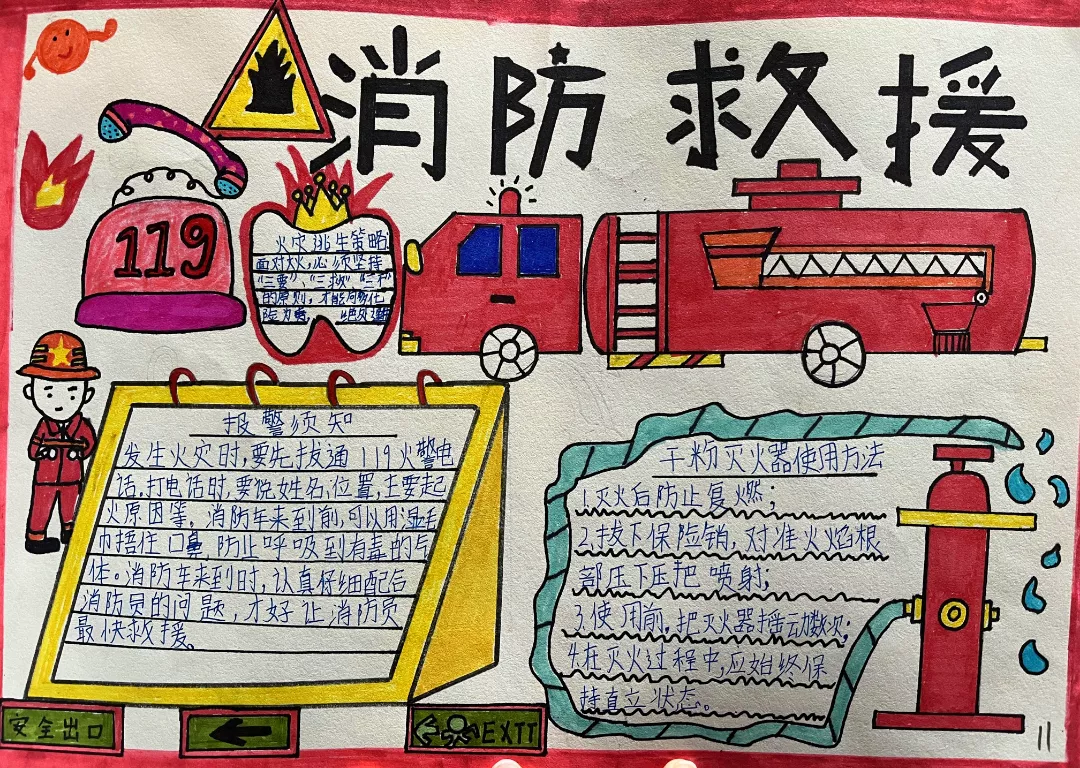 消防救援
119
火灾逃生策略
面对大火,必须坚持
“三要”、“三救”“三不”
的原则,才能够化
险为夷,
报警须知
发生火灾时,要先拔通119火警电
话,打电话时,要说姓名,位置,主要起
火原因等。消防车来到前,可以用湿毛
巾捂住口鼻,防止呼吸到有毒的气
体。消防车来到时,认真仔细配合
消防员的问题,才好让消防员
最快救援。
干粉灭火器使用方法
1.灭火后防止复燃;
2.拔下保险销,对准火焰根
部压下压把喷射;
3.使用前,把灭火器摇动数次;
4.在灭火过程中,应始终保
持直立状态。
安全出口
EXIT
11